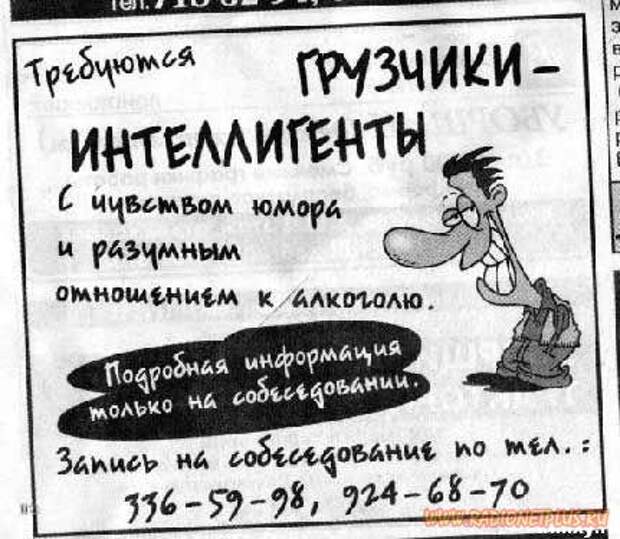 Требуются
ГРУЗЧИКИ-
ИНТЕЛЛИГЕНТЫ
С чувством юмора
и разумным
отношением к алкоголю.
Подробная информация
только на собеседовании.
Запись на собеседование по тел.:
336-59-98, 924-68-70
WWW.RADIONETPLUS.RU